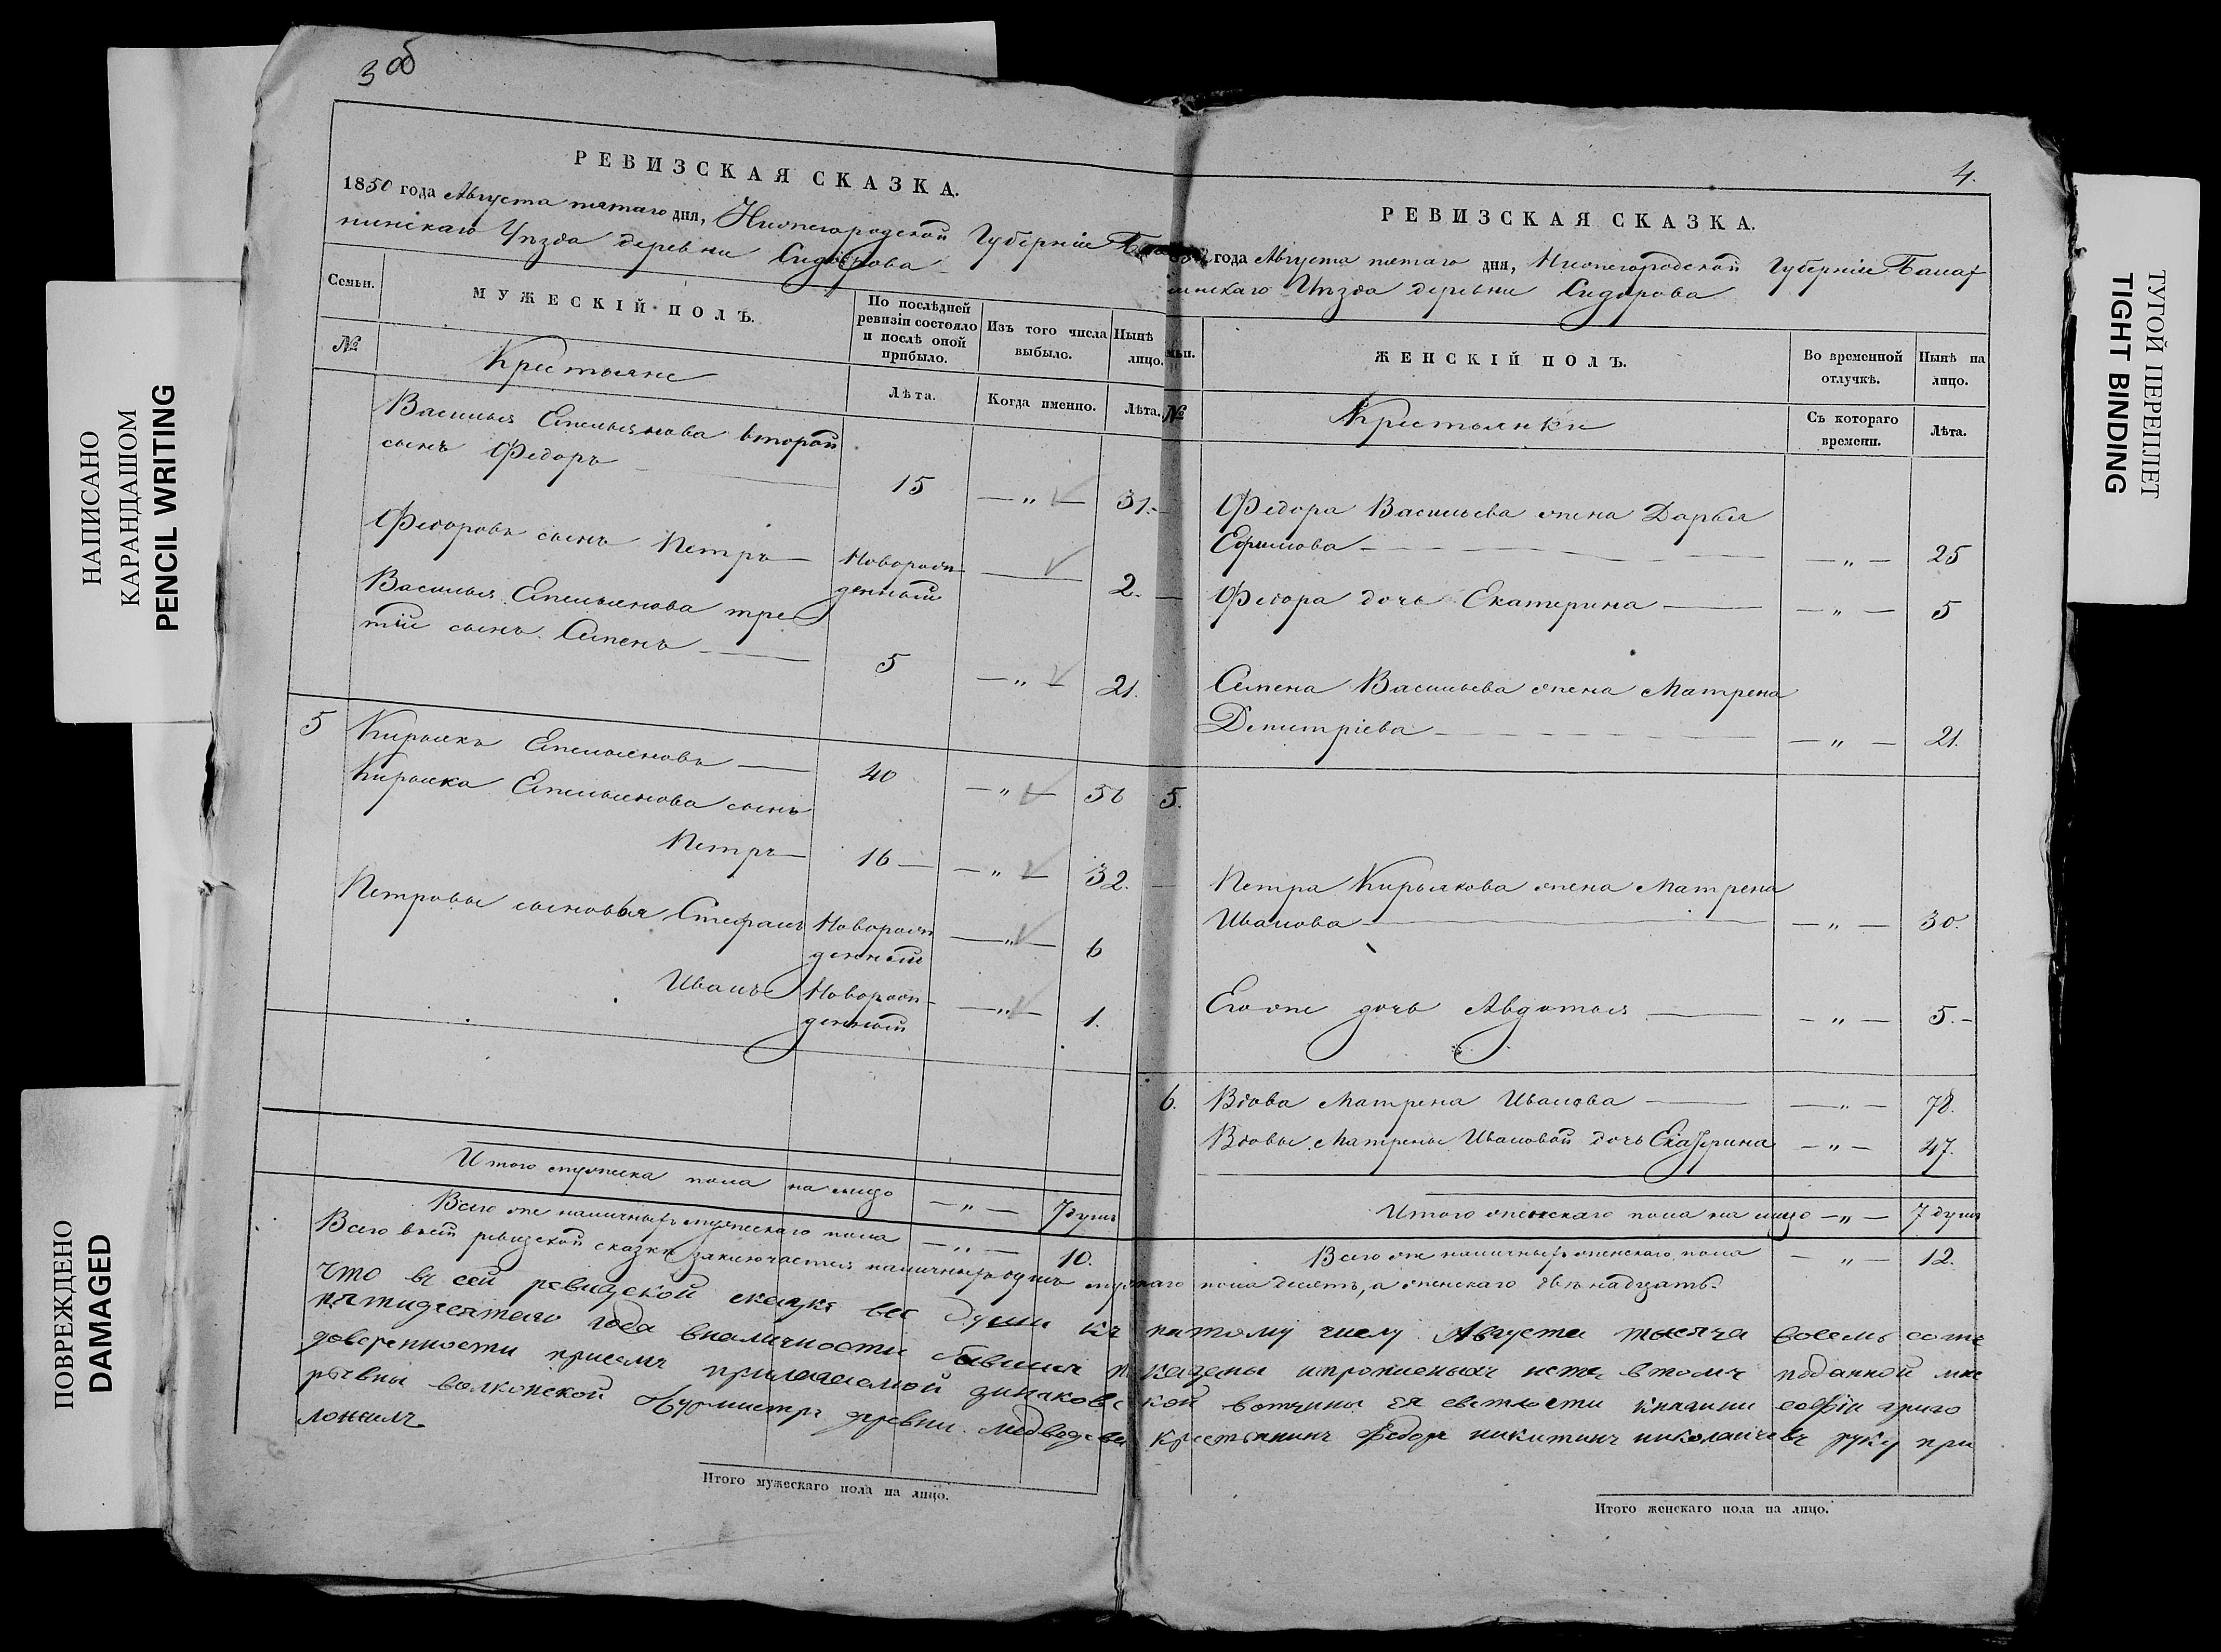 3 об
РЕВИЗСКАЯ СКАЗКА.
1850 года Августа пятаго дня, Нижегородской Губерніи
нинскаго Уѣзда деревни Сидорова
Семьи.
МУЖЕСКІЙ ПОЛЪ.
По послѣдней
ревизіи состояло
и послѣ оной
прибыло.
Изъ того числа
выбыло.
Нынѣ
лицо.
№
Крестьяне
Лѣта.
Когда именно.
Лѣта.
Василья Емельянова второй
сынъ Федоръ — 15 — „ — 31.
Федоровъ сынъ Петръ — Новорож-
денный — 2.
Василья Емельянова тре
тій сынъ Семенъ — 5 — „ — 21.
5 Кирьякъ Емельяновъ — 40 — „ — 56
Кирьяка Емельянова сынъ
Петръ — 16 — „ — 32.
Петровы сыновья Стефанъ Новорож
денный — „ — 6
Иванъ Новорож-
денный — „ — 1.
Итого мужеска пола на лицо — „ — 7 душъ
Всего же наличныхъ мужескаго пола — „ — 10.
4.
РЕВИЗСКАЯ СКАЗКА.
года Августа пятаго дня, Нижегородской Губерніи Балах
нинскаго Уѣзда деревни Сидорова
ЖЕНСКІЙ ПОЛЪ.
Во временной
отлучкѣ.
Нынѣ на
лицо.
№
Крестьянки
Съ котораго
времени.
Лѣта.
Федора Васильева жена Дарья
Ефимова — „ — 25
Федора дочь Екатерина — „ — 5
Семена Васильева жена Матрена
Дмитріева — „ — 21.
5.
Петра Кирьякова жена Матрена
Иванова — „ — 30.
Его же дочь Авдотья — „ — 5.
6. Вдова Матрена Иванова — „ — 78.
Вдовы Матрены Ивановой дочь Екатерина — „ — 47.
Итого женскаго пола на лицо — „ — 7 душъ
Всего же наличныхъ женскаго пола — „ — 12.
Всего в сей ревизской сказки заключается наличныхъ душъ мужескаго пола десеть, а женскаго двенадцать.
Что въ сей ревизской скаске все души къ пятому числу Августа тысяча восемь сотъ
пятидесятаго года вналичности бывшия показаны ипрописныхъ нетъ втомъ поданной мне
доверенности присемъ прилагаемой динаковской вотчины ея светлости княгини софіи григо
рьевны волконской бурмистръ деревни медведева крестьянинъ Федоръ никитинъ николаичевъ руку при
ложилъ
Итого мужескаго пола на лицо.
Итого женскаго пола на лицо.
НАПИСАНО
КАРАНДАШОМ
PENCIL WRITING
ПОВРЕЖДЕНО
DAMAGED
ТУГОЙ ПЕРЕПЛЕТ
TIGHT BINDING